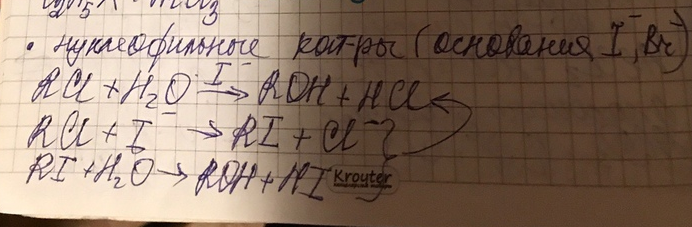 C₂H₅X
• нуклеофильные кат-ры (основания I⁻, Br⁻)
RCl + H₂O I⁻ → ROH + HCl
RCl + I⁻ → RI + Cl⁻
RI + H₂O → ROH + HI
Kroyter